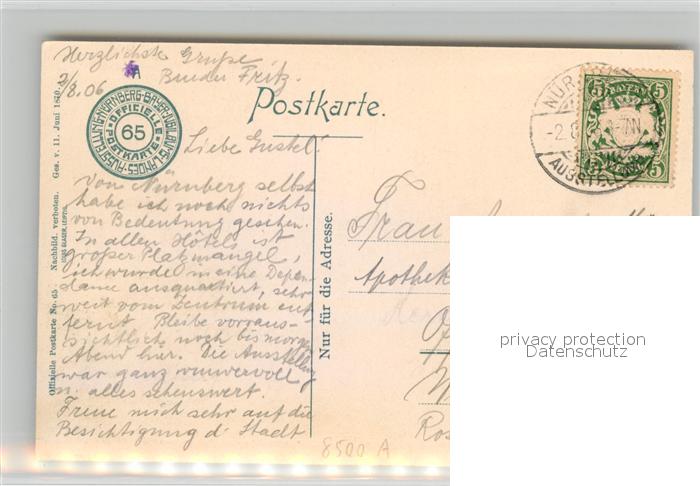 Herzlichste Grüße
2/8.06 Bruder Fritz.
AUSSTELLUNG·NÜRNBERG·BAYER·JUBILÄUMS-LANDES-
OFFICIELLE
65
POSTKARTE
Postkarte.
Liebe Gustel!
Von Nürnberg selbst
habe ich noch nichts
von Bedeutung gesehen.
In allen Hôtels ist
großer Platzmangel,
ich wurde in eine Depen-
dance ausquartiert, sehr
weit vom Zentrum ent
fernt. Bleibe voraus-
sichtlich noch bis morgen
Abend hier. Die Ausstellung
war ganz wundervoll
u. alles sehenswert.
Freue mich sehr auf die
Besichtigung d. Stadt.
Offizielle Postkarte No. 65. Nachbild. verboten. Ges. v. 11. Juni 1870.
Nur für die Adresse.
Frau
Apothek
NÜR
-2.8
AUSSTELL
5 BAYERN 5
5 5
privacy protection
Datenschutz
8500 A